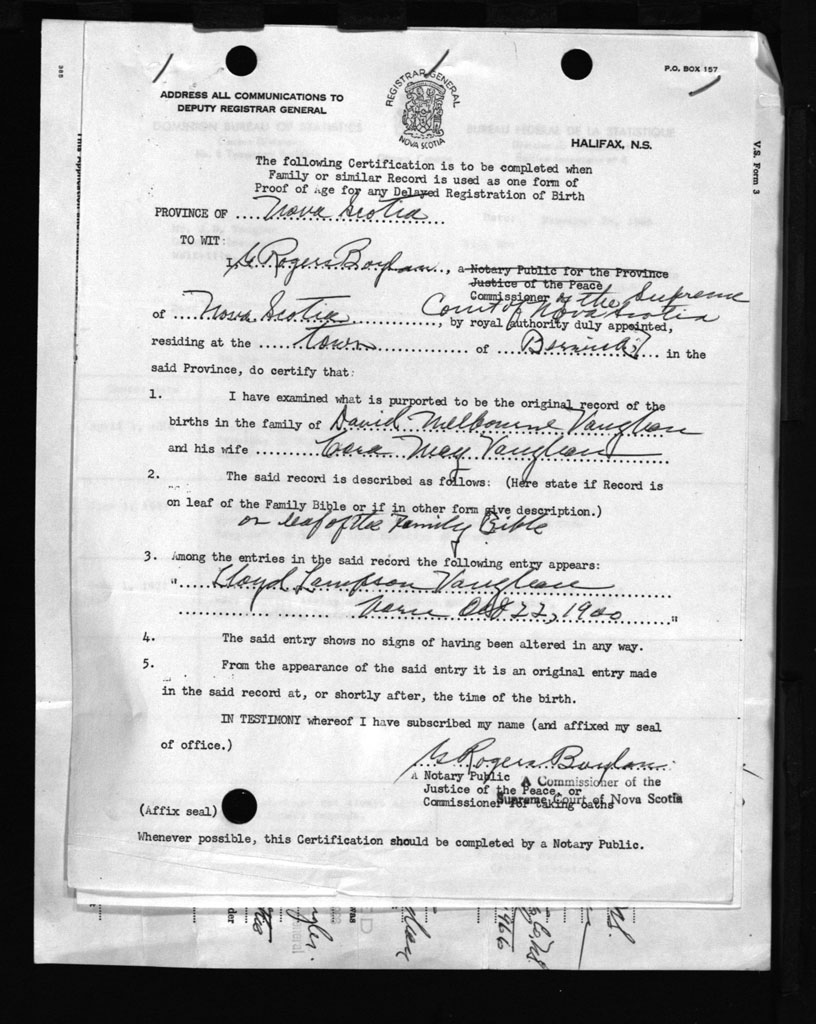 ADDRESS ALL COMMUNICATIONS TO
DEPUTY REGISTRAR GENERAL
REGISTRAR GENERAL
NOVA SCOTIA
P.O. BOX 157
HALIFAX, N.S.
V.S. Form 3
The following Certification is to be completed when
Family or similar Record is used as one form of
Proof of Age for any Delayed Registration of Birth
PROVINCE OF ....Nova Scotia
TO WIT:
I, G Rogers Boylan, a Notary Public for the Province
Justice of the Peace
Commissioner of the Supreme
Court of Nova Scotia
of ....Nova Scotia..., by royal authority duly appointed,
residing at the ....town.... of ....Berwick.... in the
said Province, do certify that:
1. I have examined what is purported to be the original record of the
births in the family of David Melbourne Vaughan
and his wife ....Cora May Vaughan....
2. The said record is described as follows: (Here state if Record is
on leaf of the Family Bible or if in other form give description.)
on leaf of the Family Bible
3. Among the entries in the said record the following entry appears:
"....Lloyd Vaughan
born Oct 22, 1900...."
4. The said entry shows no signs of having been altered in any way.
5. From the appearance of the said entry it is an original entry made
in the said record at, or shortly after, the time of the birth.
IN TESTIMONY whereof I have subscribed my name (and affixed my seal
of office.)
G Rogers Boylan
A Notary Public
Justice of the Peace, or
Commissioner for taking oaths
A Commissioner of the
Supreme Court of Nova Scotia
(Affix seal)
Whenever possible, this Certification should be completed by a Notary Public.